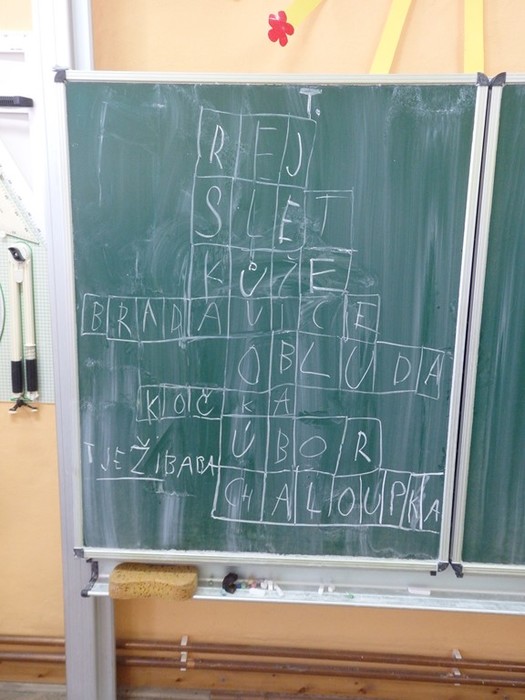 T.
REJ
SLET
KŮŽE
BRADAVICE
OBLUDA
KOČKA
ÚBOR
TJEŽIBABA
CHALOUPKA